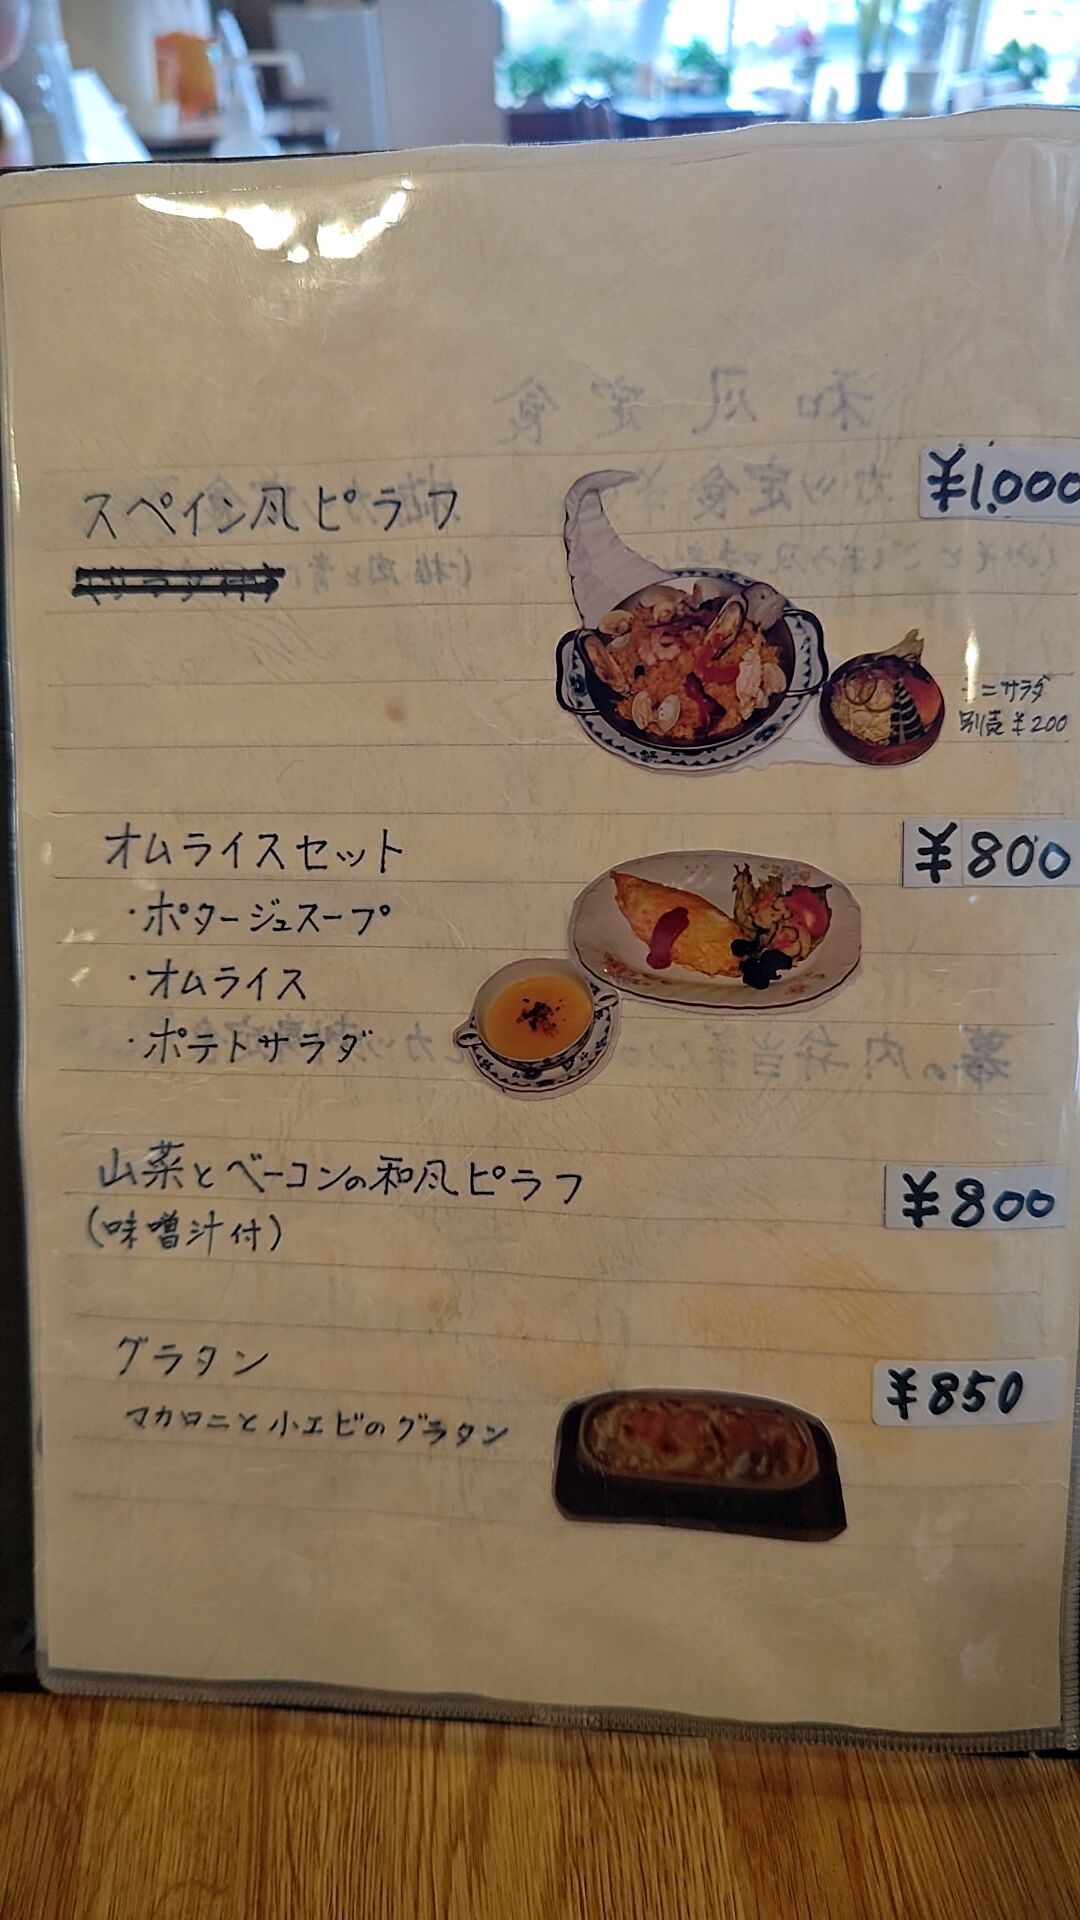 スペイン風ピラフ ¥1,000
(サラダ付)
ミニサラダ
別売¥200
オムライスセット ¥800
・ポタージュスープ
・オムライス
・ポテトサラダ
山菜とベーコンの和風ピラフ ¥800
(味噌汁付)
グラタン ¥850
マカロニと小エビのグラタン